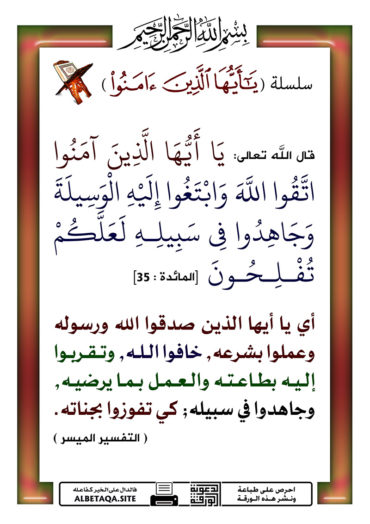 بسم الله الرحمن الرحيم
سلسلة ( يَـٰٓأَيُّهَا ٱلَّذِينَ ءَامَنُوا۟ )
قال الله تعالى: يَا أَيُّهَا الَّذِينَ آمَنُوا
اتَّقُوا اللَّهَ وَابْتَغُوا إِلَيْهِ الْوَسِيلَةَ
وَجَاهِدُوا فِي سَبِيلِهِ لَعَلَّكُمْ
تُفْلِحُونَ [المائدة : 35]
أي يا أيها الذين صدقوا الله ورسوله
وعملوا بشرعه, خافوا الله, وتقربوا
إليه بطاعته والعمل بما يرضيه,
وجاهدوا في سبيله; كي تفوزوا بجناته.
( التفسير الميسر )
احرص على طباعة
ونشر هذه الورقة
الدعوية
الورقة
فالدال على الخير كفاعله
ALBETAQA.SITE